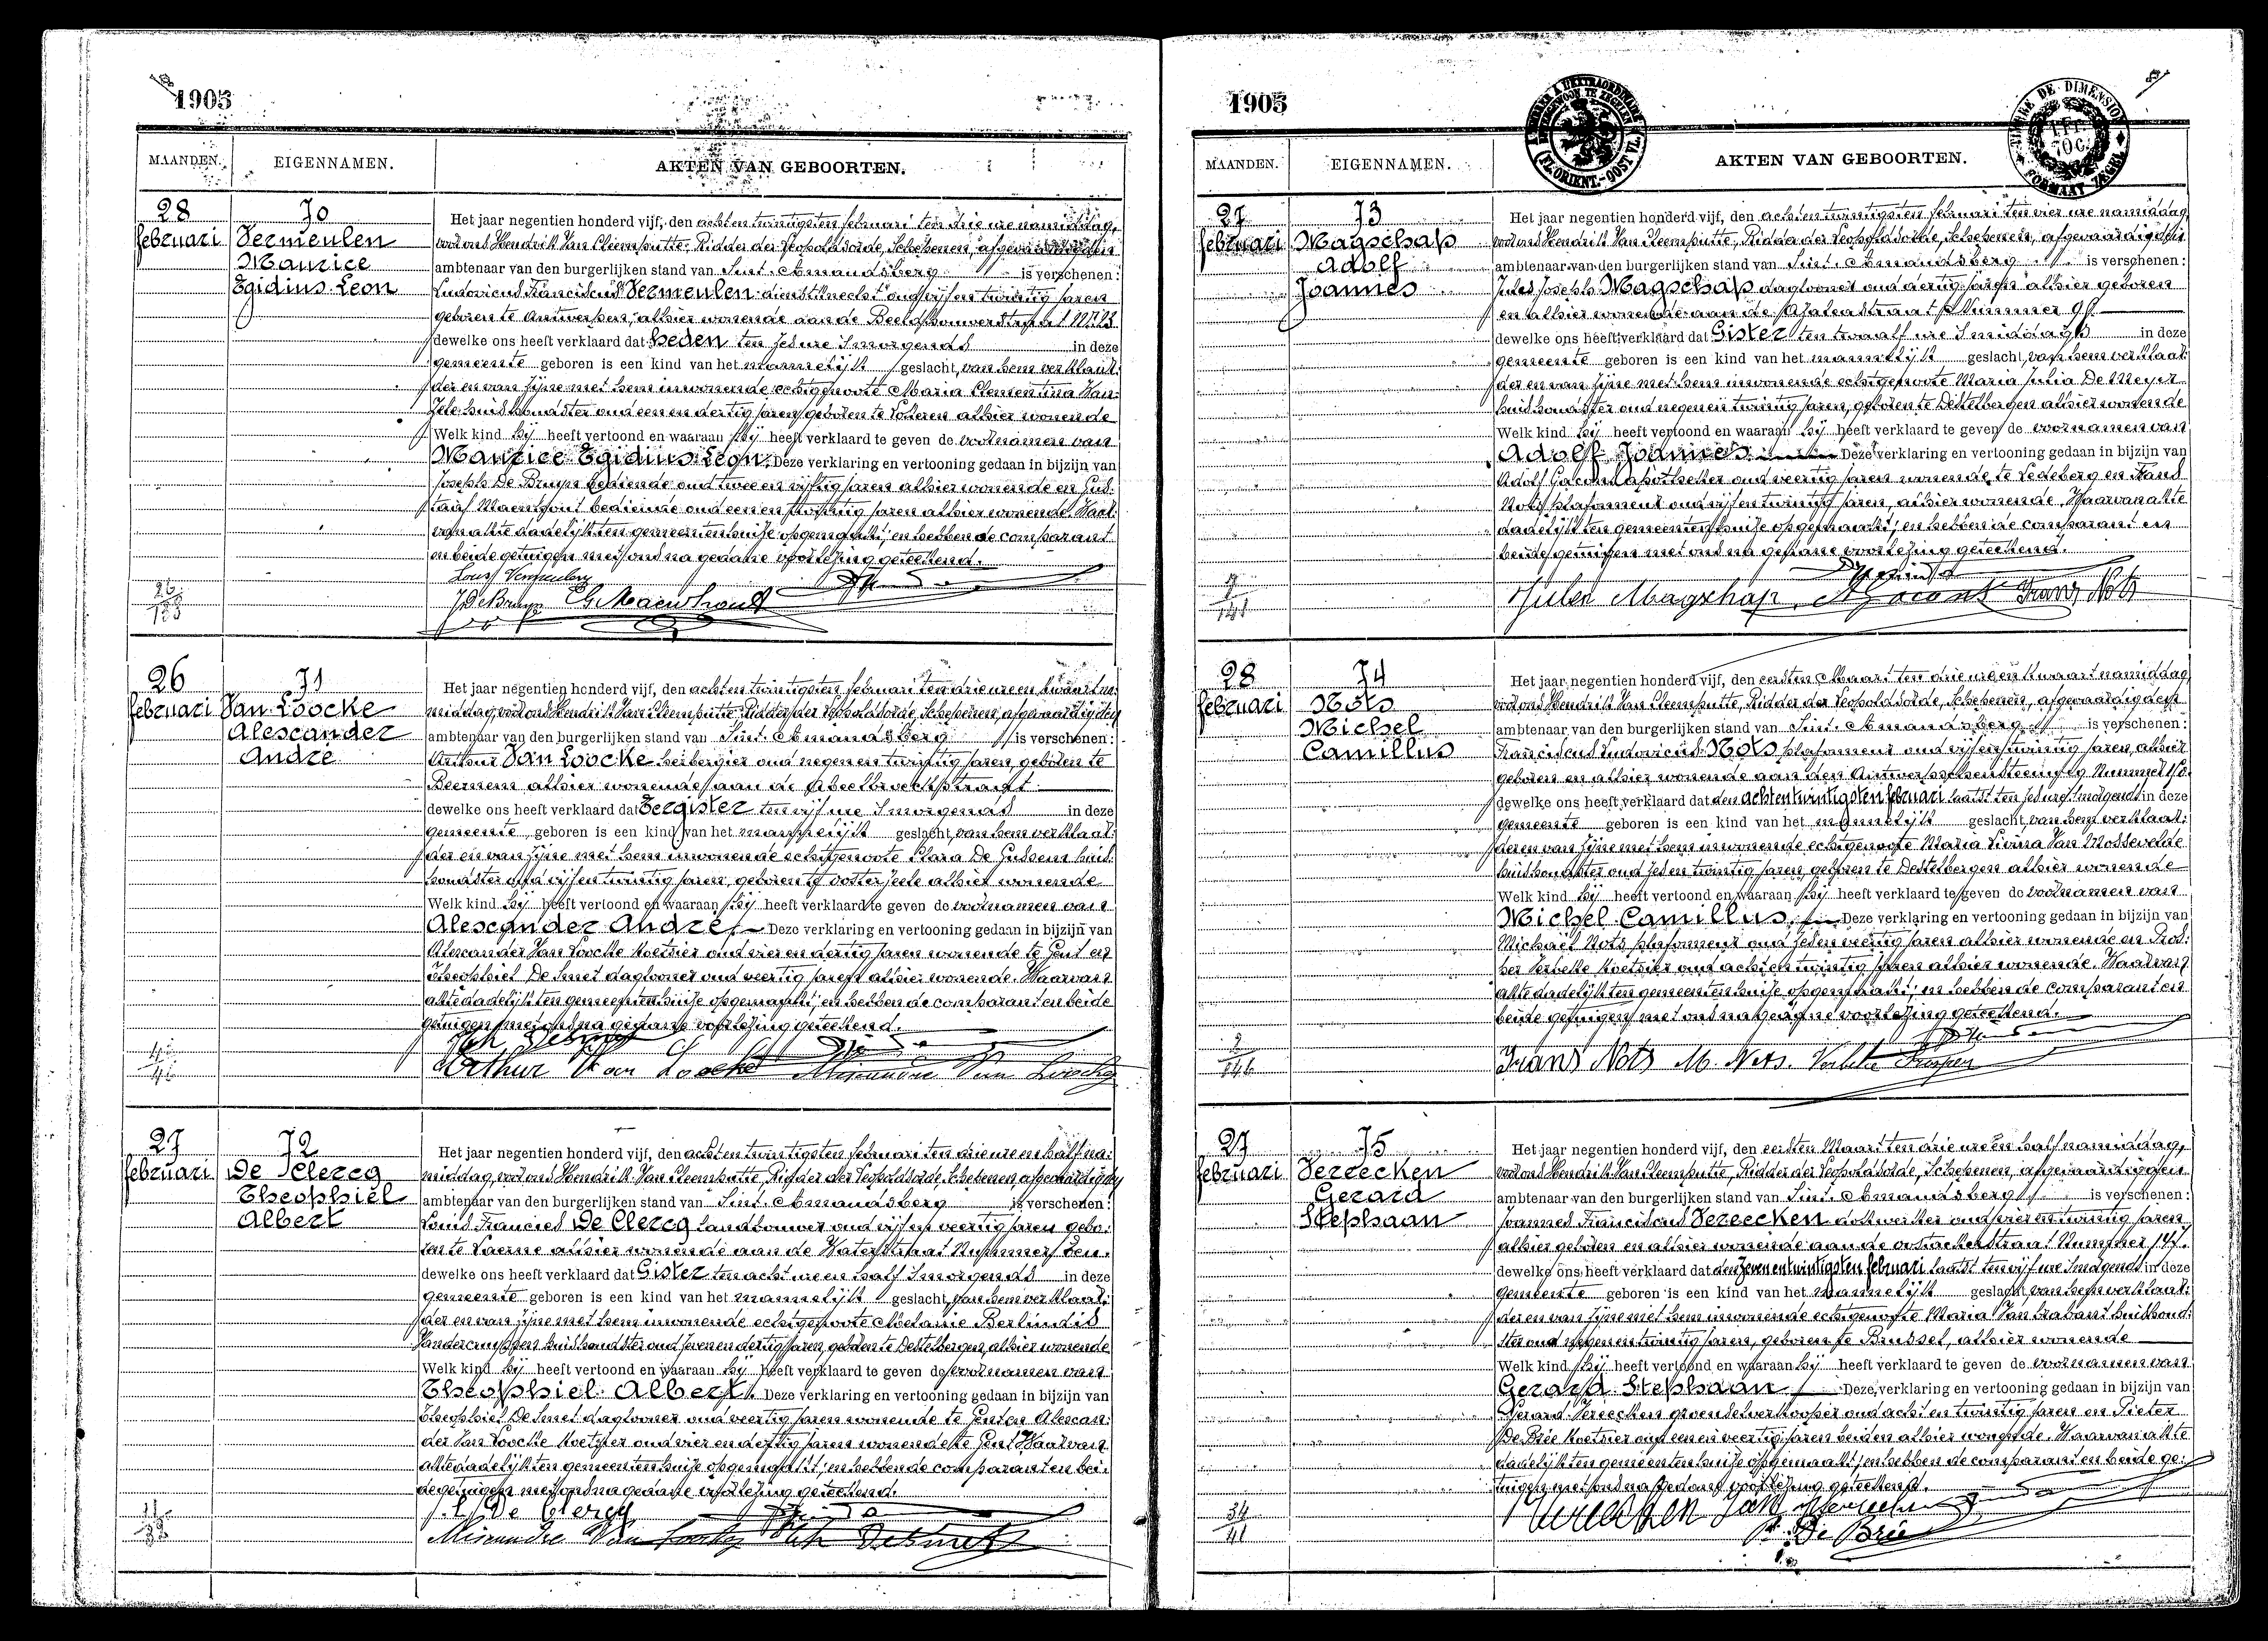 1905
MAANDEN. EIGENNAMEN. AKTEN VAN GEBOORTEN.
28 februari
70
Vermeulen
Maurice
Egidius Leon
Het jaar negentien honderd vijf, den achtentwintigsten februari ten drie ure namiddag,
voor ons Hendrik Van Cleemputte, Ridder der Leopoldsorde, Schepenen, afgevaardigden
ambtenaar van den burgerlijken stand van Sint-Amandsberg is verschenen:
Ludovicus Franciscus Vermeulen dienstknecht oud vijfentwintig jaren
geboren te Antwerpen, alhier wonende aan de Beeldhouwerstraat
dewelke ons heeft verklaard dat heden ten zes ure 's morgends in deze
gemeente geboren is een kind van het mannelijk geslacht, van hem verklaar-
der en van zijne met hem inwonende echtgenoote Maria Clementina Van
Zele huishoudster oud eenendertig jaren, geboren te Lokeren alhier wonende
Welk kind hij heeft vertoond en waaraan hij heeft verklaard te geven de voornamen van
Maurice Egidius Leon. Deze verklaring en vertooning gedaan in bijzijn van
Joseph De Bruyn bediende oud tweeenvijftig jaren alhier wonende en Gus-
taaf Maenhout bediende oud eenen jaren alhier wonende. Waar-
van akte dadelijk ten gemeentenhuize opgemaakt, en hebben de comparant
en beide getuigen met ons na gedane voorlezing geteekend.
Louis Vermeulen
J De Bruyn G. Maenhout
26 februari
71
Van Loocke
Alexander
André
Het jaar negentien honderd vijf, den achtentwintigsten februari ten drie ure en kwaart na-
middag, voor ons Hendrik Van Cleemputte, Ridder der Leopoldsorde, Schepenen, afgevaardigden
ambtenaar van den burgerlijken stand van Sint-Amandsberg is verschenen:
Arthur Van Loocke herbergier oud negenentwintig jaren, geboren te
Beernem alhier wonende aan de
dewelke ons heeft verklaard dat Eergister ten vijf ure 's morgends in deze
gemeente geboren is een kind van het mannelijk geslacht, van hem verklaar-
der en van zijne met hem inwonende echtgenoote Clara De Gussem huis-
houdster oud vijfentwintig jaren, geboren te Oosterzeele alhier wonende
Welk kind hij heeft vertoond en waaraan hij heeft verklaard te geven de voornamen van
Alexander André. Deze verklaring en vertooning gedaan in bijzijn van
Alexander Van Loocke koetsier oud vierendertig jaren wonende te Gent en
Theophiel De Smet daglooner oud veertig jaren alhier wonende. Waarvan
akte dadelijk ten gemeentenhuize opgemaakt, en hebben de comparant en beide
getuigen met ons na gedane voorlezing geteekend.
Arthur Van Loocke
27 februari
72
De Clercq
Theophiel
Albert
Het jaar negentien honderd vijf, den achtentwintigsten februari ten drie ure en half na-
middag, voor ons Hendrik Van Cleemputte, Ridder der Leopoldsorde, Schepenen afgevaardigden
ambtenaar van den burgerlijken stand van Sint-Amandsberg is verschenen:
Louis Francies De Clercq landbouwer oud vijfenveertig jaren gebo-
ren te Laerne alhier wonende aan de Waterstraat Nummer
dewelke ons heeft verklaard dat Gister ten acht ure en half 's morgends in deze
gemeente geboren is een kind van het mannelijk geslacht, van hem verklaar-
der en van zijne met hem inwonende echtgenoote Melanie Berlindis
huishoudster oud zevenendertig jaren, geboren te Destelbergen, alhier wonende
Welk kind hij heeft vertoond en waaraan hij heeft verklaard te geven de voornamen van
Theophiel Albert. Deze verklaring en vertooning gedaan in bijzijn van
Theophiel De Smet daglooner oud veertig jaren wonende te Gent en Alexan-
der Van Loocke koetsier oud vierendertig jaren wonende te Gent Waarvan
akte dadelijk ten gemeentenhuize opgemaakt, en hebben de comparant en bei-
de getuigen met ons na gedane voorlezing geteekend.
De Clercq
1905
MAANDEN. EIGENNAMEN. AKTEN VAN GEBOORTEN.
27 februari
73
Magschap
Adolf
Joannes
Het jaar negentien honderd vijf, den achtentwintigsten februari ten vier ure namiddag
voor ons Hendrik Van Cleemputte, Ridder der Leopoldsorde, Schepenen, afgevaardigden
ambtenaar van den burgerlijken stand van Sint-Amandsberg is verschenen:
Jules Joseph Magschap daglooner oud dertig jaren alhier geboren
en alhier wonende aan de Azaleastraat Nummer
dewelke ons heeft verklaard dat Gister ten twaalf ure 's middags in deze
gemeente geboren is een kind van het mannelijk geslacht, van hem verklaar-
der en van zijne met hem inwonende echtgenoote Maria Julia De Meyer
huishoudster oud negenentwintig jaren, geboren te Destelbergen alhier wonende
Welk kind hij heeft vertoond en waaraan hij heeft verklaard te geven de voornamen van
Adolf Joannes. Deze verklaring en vertooning gedaan in bijzijn van
Adolf Gacond apotheker oud veertig jaren wonende te Ledeberg en Frans
Nots plafonneur oud vijfentwintig jaren, alhier wonende. Waarvan akte
dadelijk ten gemeentenhuize opgemaakt, en hebben de comparant en
beide getuigen met ons na gedane voorlezing geteekend.
Jules Magschap. Frans Nots
28 februari
74
Nots
Michel
Camillus
Het jaar negentien honderd vijf, den eersten Maart ten drie ure en kwaart namiddag
voor ons Hendrik Van Cleemputte, Ridder der Leopoldsorde, Schepenen, afgevaardigden
ambtenaar van den burgerlijken stand van Sint-Amandsberg is verschenen:
Franciscus Ludovicus Nots plafonneur oud vijfentwintig jaren, alhier
geboren en alhier wonende aan den Antwerpschensteenweg Nummer
dewelke ons heeft verklaard dat den achtentwintigsten februari laatst ten zes ure 's morgends in deze
gemeente geboren is een kind van het mannelijk geslacht, van hem verklaar-
der en van zijne met hem inwonende echtgenoote Maria Livina Van Mossevelde
huishoudster oud zesentwintig jaren geboren te Destelbergen alhier wonende
Welk kind hij heeft vertoond en waaraan hij heeft verklaard te geven de voornamen van
Michel Camillus. Deze verklaring en vertooning gedaan in bijzijn van
Michaël Nots plafonneur oud zesenveertig jaren alhier wonende en Pros-
per Verbeke koetsier oud achtentwintig jaren alhier wonende. Waarvan
akte dadelijk ten gemeentenhuize opgemaakt, en hebben de comparant en
beide getuigen met ons na gedane voorlezing geteekend.
Frans Nots M. Nots. Verbeke Prosper
27 februari
75
Vereecken
Gerard
Stephaan
Het jaar negentien honderd vijf, den eersten Maart ten drie ure en half namiddag,
voor ons Hendrik Van Cleemputte, Ridder der Leopoldsorde, Schepenen, afgevaardigden
ambtenaar van den burgerlijken stand van Sint-Amandsberg is verschenen:
Joannes Franciscus Vereecken dokwerker oud vierentwintig jaren
alhier geboren en alhier wonende aan de Oostackerstraat Nummer 147.
dewelke ons heeft verklaard dat den zevenentwintigsten februari laatst ten vijf ure 's morgends in deze
gemeente geboren is een kind van het mannelijk geslacht van hem verklaar-
der en van zijne met hem inwonende echtgenoote Maria Van Brabant huishoud-
ster oud negenentwintig jaren, geboren te Brussel, alhier wonende
Welk kind hij heeft vertoond en waaraan hij heeft verklaard te geven de voornamen van
Gerard Stephaan. Deze verklaring en vertooning gedaan in bijzijn van
Gerard Vereecken groenselverkooper oud achtentwintig jaren en Pieter
De Brie koetsier oud eenenveertig jaren beiden alhier wonende. Waarvan akte
dadelijk ten gemeentenhuize opgemaakt, en hebben de comparant en beide ge-
tuigen met ons na gedane voorlezing geteekend.
Vereecken
P. De Brie